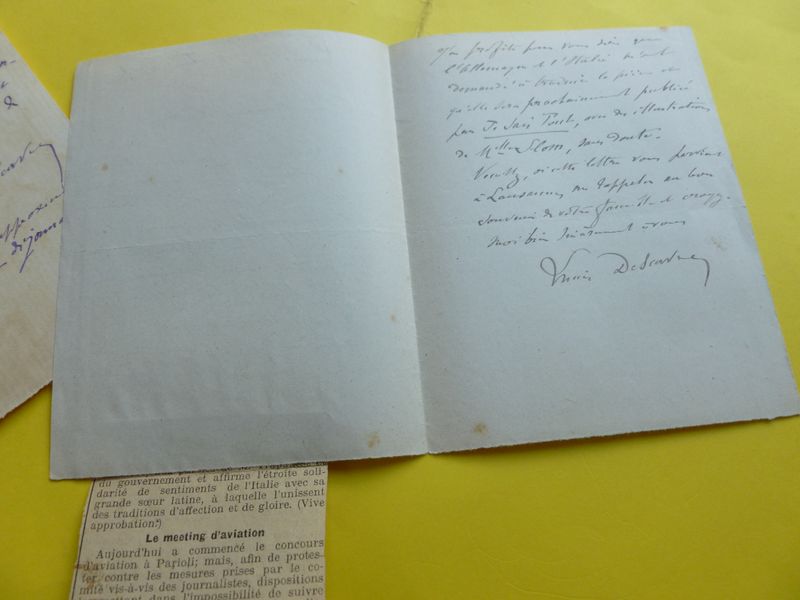 profite pour vous dire que
l'Allemagne et l'Italie m'ont
demandé à traduire la pièce et
qu'elle sera prochainement publiée
par Je Sais Tout, avec des illustrations
de , sans doute.
Veuillez, si cette lettre vous parvient
à Lausanne, me rappeler au bon
souvenir de votre famille et croyez-
moi bien sincèrement à vous
Lucien Descaves
du gouvernement et affirme l'étroite soli-
darité de sentiments de l'Italie avec sa
grande sœur latine, à laquelle l'unissent
des traditions d'affection et de gloire. (Vive
approbation.)
Le meeting d'aviation
Aujourd'hui a commencé le concours
d'aviation à Parioli; mais, afin de protes-
ter contre les mesures prises par le co-
mité vis-à-vis des journalistes, dispositions
dans l'impossibilité de suivre